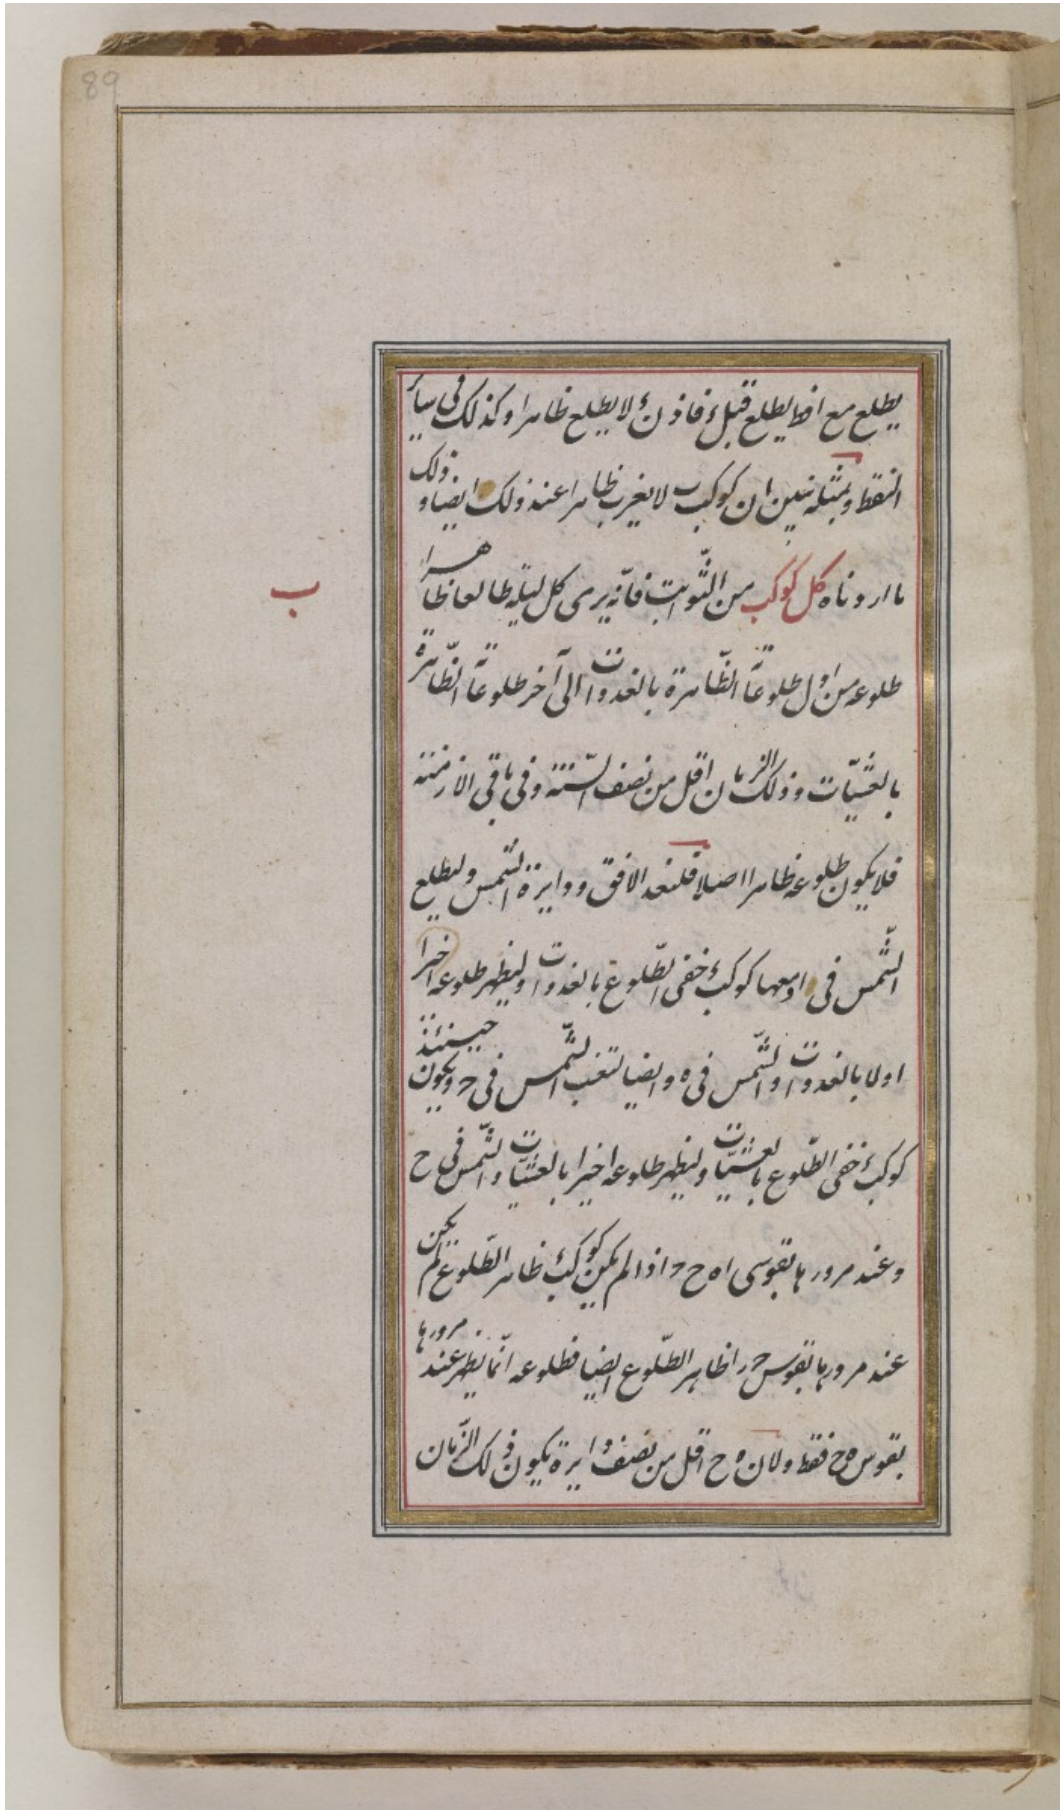 89
يطلع مع ا فط يطلع قبل ء فاذن ء لا يطلع ظاهرا و كذلك فى ساير
النقط و بمثله نبين ان كوكب ب لا يغرب ظاهرا عند ذلك ايضا و ذلك
ما اردناه كل كوكب من الثّوابت فانّه يرى كل ليلة طالعا ظاهرا
ب
طلوعه من اول طلوعاته الظّاهرة بالغدوات الى آخر طلوعاته الظّاهرة
بالعشيّات و ذلك الزمان اقل من نصف السّنة و فى باقى الازمنة
فلا يكون طلوعه ظاهرا اصلا فلنعد الافق و دايرة الشّمس و ليطلع
الشّمس فى ا و معها كوكب ء خفى الطّلوع بالغدوات و ليظهر طلوعه اخيرا
اولا بالغدوات و الشّمس فى ه و ايضا لتغب الشّمس فى ر و يكون حينئذ
كوكب ء خفى الطّلوع بالعشيّات و ليظهر طلوعه اخيرا بالعشيّات و الشّمس فى ح
و عند مرورها بقوسى اه ح ر اذا لم يكن كوكب ء ظاهر الطّلوع لم يكن
عند مرورها بقوس ر ا ظاهر الطّلوع ايضا فطلوعه انّما يظهر عند مرورها
بقوس ه ح فقط و لان ه ح اقل من نصف دايرة يكون ذلك الزّمان